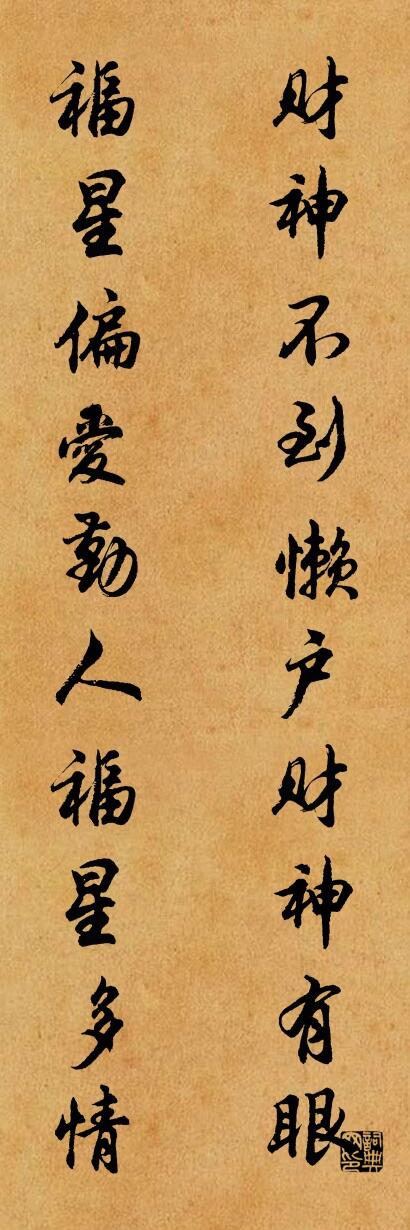 财神不到懒户财神有眼
福星偏爱勤人福星多情